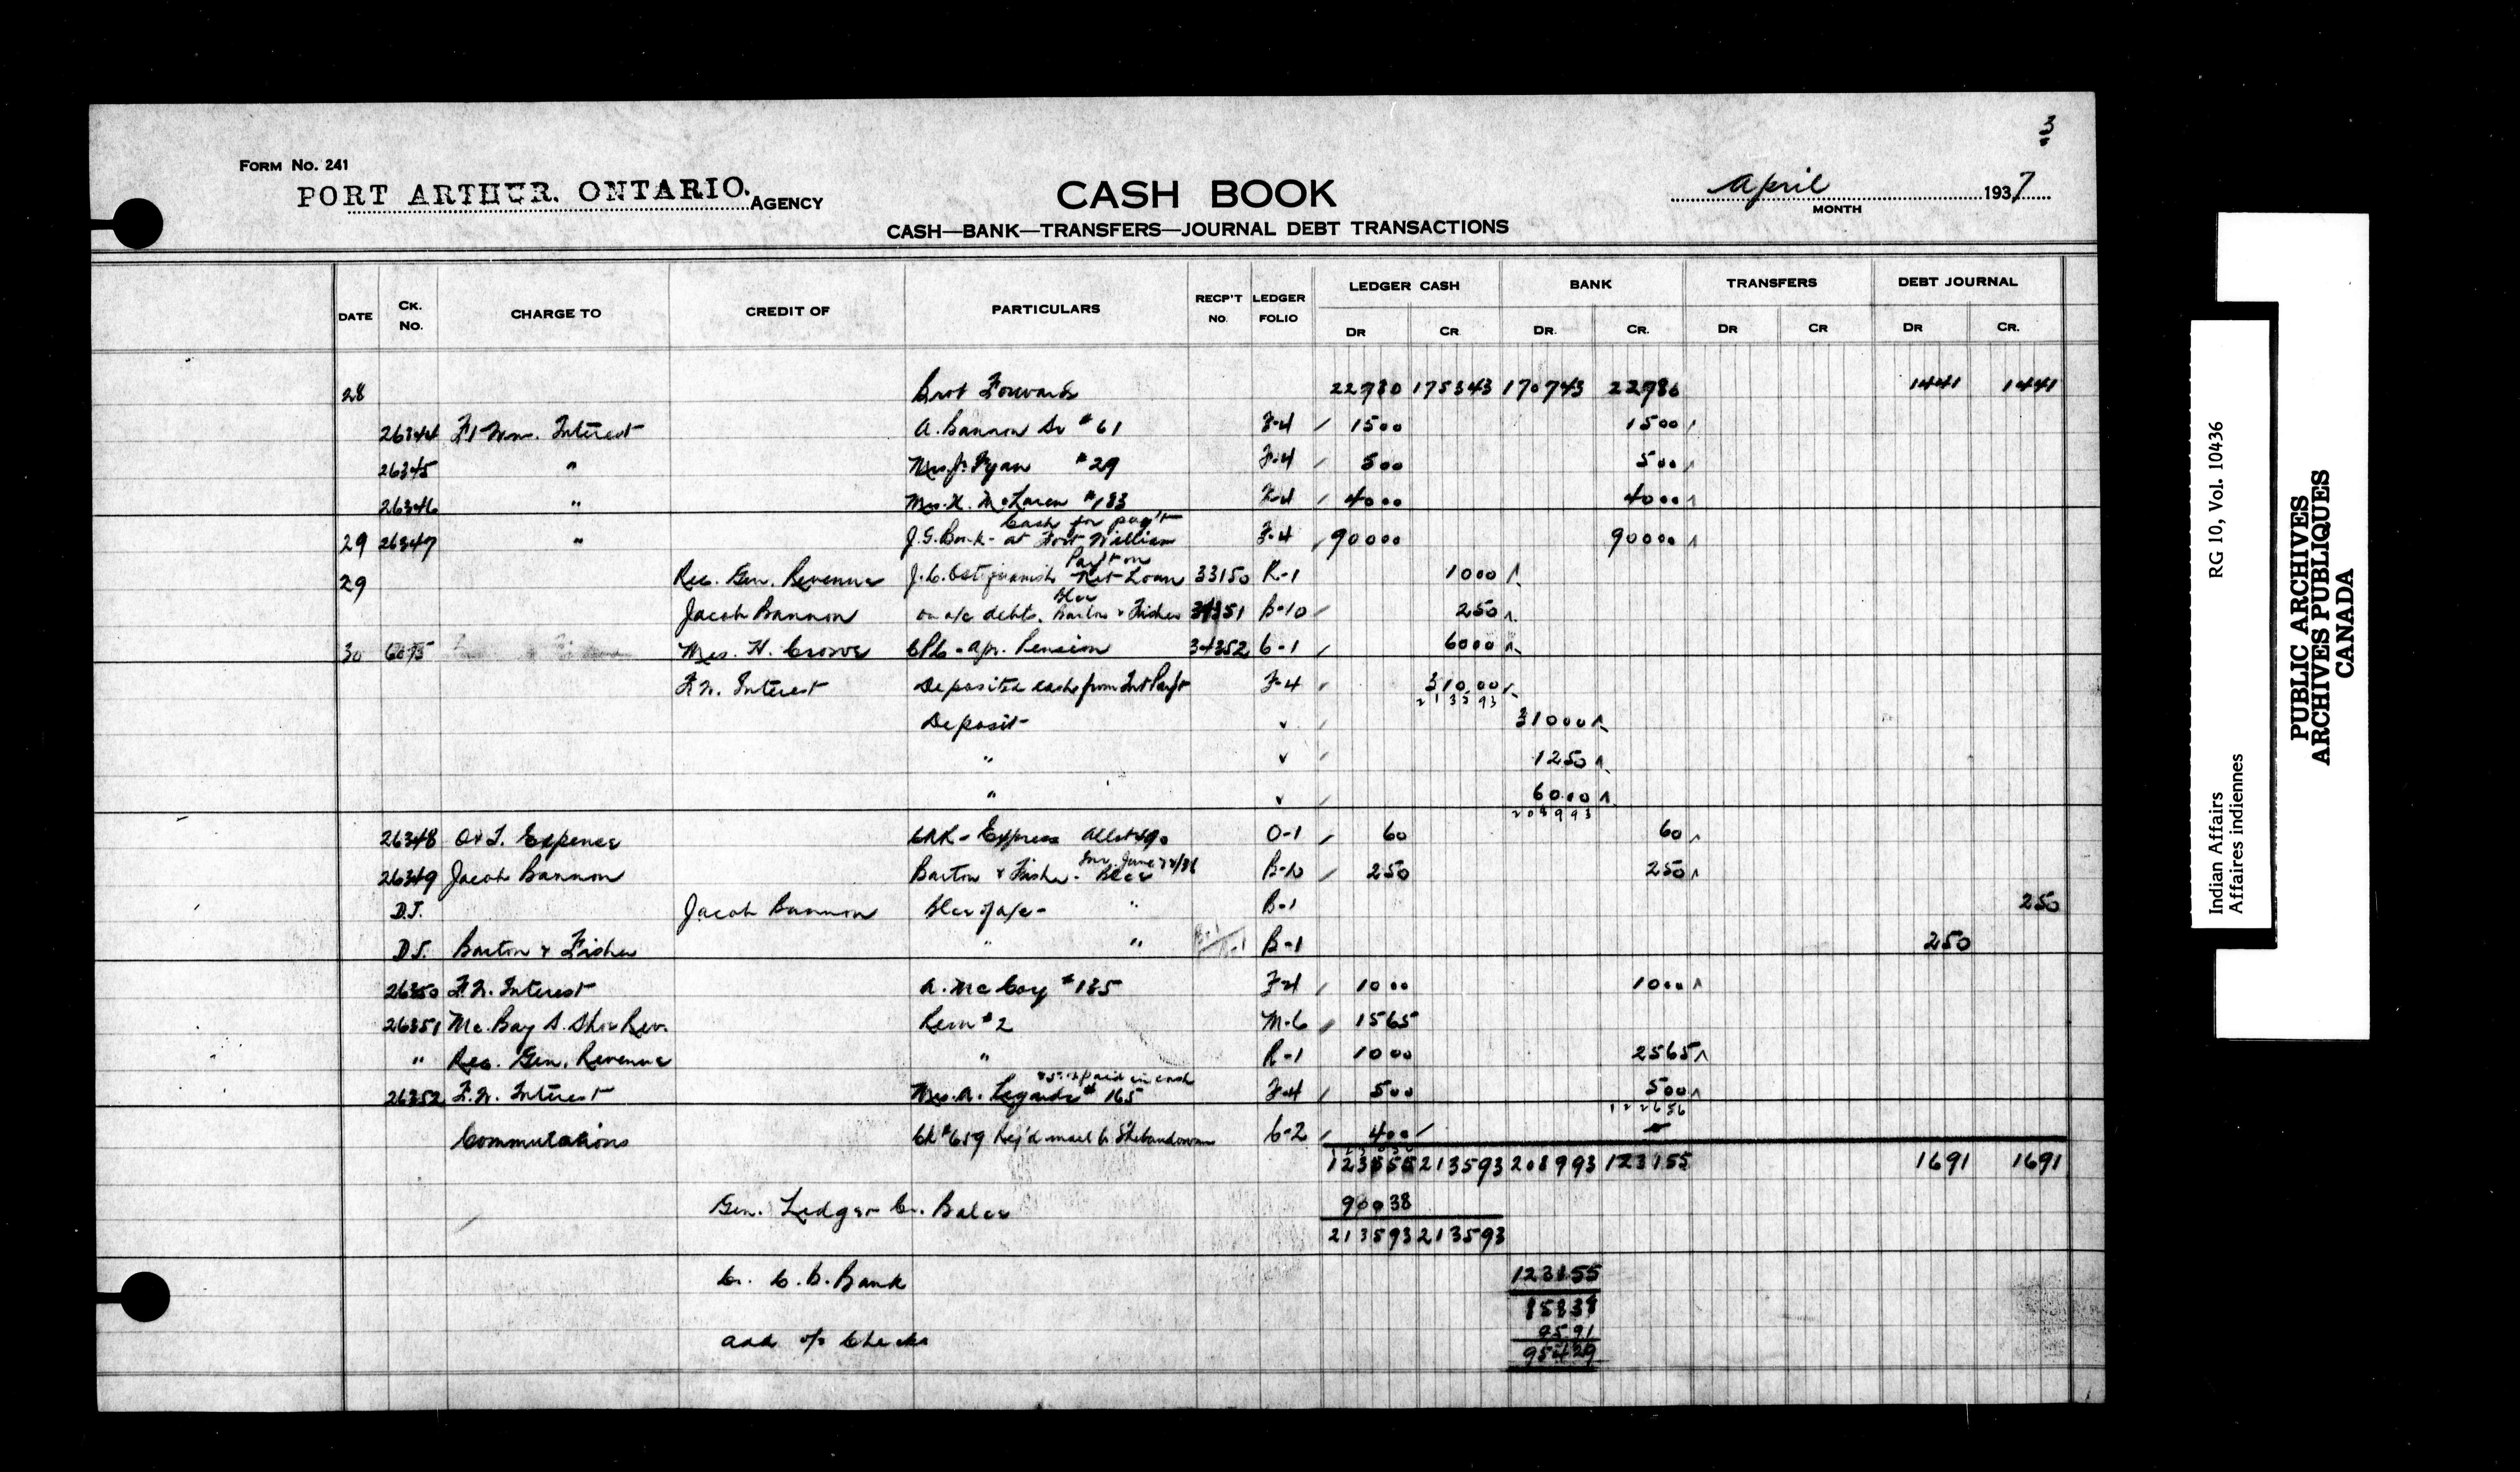 3
FORM No. 241
PORT ARTHUR. ONTARIO. AGENCY
CASH BOOK
April 1937
MONTH
CASH—BANK—TRANSFERS—JOURNAL DEBT TRANSACTIONS
DATE CK. No. CHARGE TO CREDIT OF PARTICULARS RECP'T NO. LEDGER FOLIO LEDGER CASH BANK TRANSFERS DEBT JOURNAL
DR CR. DR. CR. DR CR DR CR.
28 Brot Forward 22780 175343 170743 22786 1441 1441
26344 Ft Wm. Interest A. Bannon Sr #61 F-4 1500 1500
26345 " Mrs. J. Fyan #29 F-4 500 500
26346 " Mrs. K. McLaren #183 F-4 4000 4000
29 26347 " J.G. Burk - Cash for pay't at Fort William F-4 90000 90000
29 Rec. Gen. Revenue Pay't on Ret Loan 33150 R-1 1000
Jacob Bannon on a/c debts. Barton & Fisher 34351 B-10 250
30 6075 Mrs. H. Crowe CPC - Apr. Pension 34352 C-1 6000
F.W. Interest Deposited cash from Int Pay't F-4 310.00
213593
Deposit ✓ 31000
" ✓ 1250
" ✓ 6000
208993
26348 O&T. Expense CNR - Express Allot 490 O-1 60 60
26349 Jacob Bannon Barton & Fisher - Blcs Inv. June 22/36 B-10 250 250
D.J. Jacob Bannon Blcs of a/c - " B-1 250
D.J. Barton & Fisher " " B-1 250
26350 F.W. Interest A. McCoy #185 F-4 1000 1000
26351 Mc. Bay S. Shor Rev. Rem #2 M-6 1565
" Rec. Gen. Revenue " R-1 1000 2565
26352 F.W. Interest Mrs. A. Legarde #165 paid in cash F-4 500 500
122656
Commutations Ck #659 Reg'd mail to Shebandowan C-2 400
123555 213593 208993 123155 1691 1691
Gen. Ledger Cr. Balce 90038
213593 213593
Cr. C.B. Bank 123155
85838
Add o/s Checks 9591
95429
RG 10, Vol. 10436
Indian Affairs
Affaires indiennes
PUBLIC ARCHIVES
ARCHIVES PUBLIQUES
CANADA